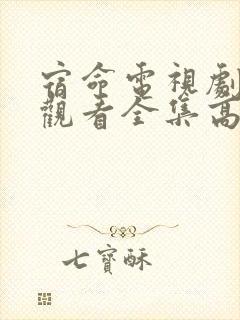 宿命電視劇
觀看全集高
七寶酥